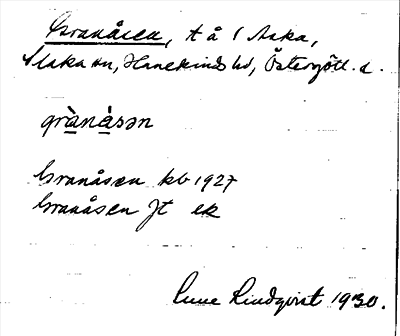 Granåsen, t å i Aska,
Slaka sn, Hanekinds hd, Östergötl. l.
grànàsən
Granåsen kb 1927
Granåsen Jt ek
Sune Lindqvist 1930.